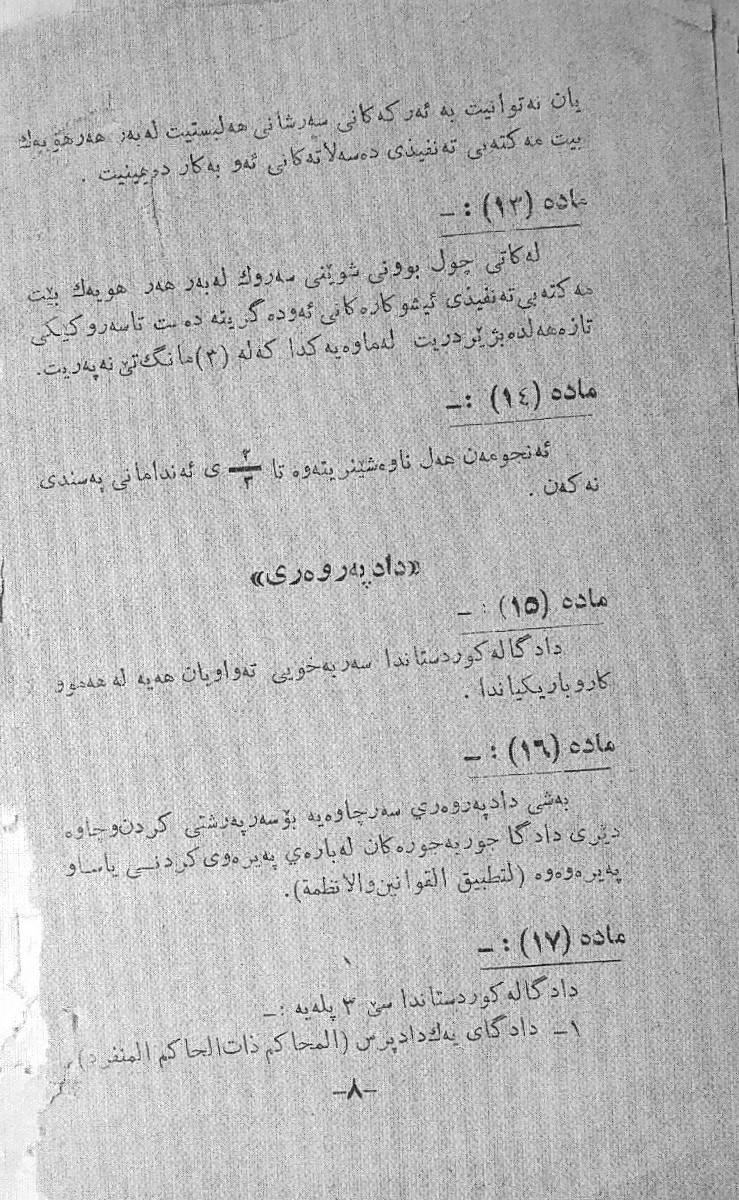 یان نەتوانیت بە ئەرکەکانی سەرشانی هەلبستیت لەبەر هەرهۆیەك
بیت مەکتەبی تەنفیذی دەسەلاتەکانی ئەو بەکار دەهینیت .
مادە (١٣) : ـ
لەکاتی چول بوونی شوێنی سەروك لەبەر هەر هویەك بێت
مەکتەبی تەنفیذی ئیشوکارەکانی ئەودەگریتە دەست تاسەروکێکی
تازەهەلدەبژێردریت لەماوەیەکدا کەلە (٣)مانگ تێ نەپەریت.
مادە (١٤) :ـ
ئەنجومەن هەل ناوەشێنریتەوە تا ٢/٣ ی ئەندامانی پەسندی
نەکەن .
«دادپەروەری»
مادە (١٥) : ـ
دادگالەکوردستاندا سەربەخویی تەواویان هەیە لە هەموو
کاروباریکیاندا .
مادە (١٦) : ـ
بەشی دادپەروەري سەرچاوەیە بۆسەرپەرشتی کردن‌وچاوە
دێری دادگا جوربەجورەکان لەبارەي پەیرەوی‌کردنــی یاسـاو
پەیرەوەوە (لتطبيق القوانين‌والانظمة).
مادە (١٧) : ـ
دادگالەکوردستاندا سێ ٣ پلەیە :ـ
١ـ دادگای یەك‌دادپرس (المحاكم ذات‌الحاكم المنفرد)
ـ٨ـ